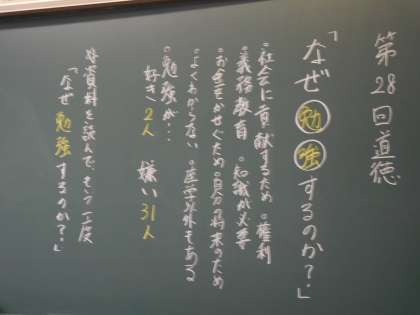 第28回道徳
「なぜ勉強するのか?」
•社会に貢献するため •権利
•義務教育 •知識が必要
•お金をかせぐため •自分の将来のため
•よくわからない •座学以外もある
•勉強が…
好き2人 嫌い31人
☆資料を読んで、もう一度
「なぜ勉強するのか?」